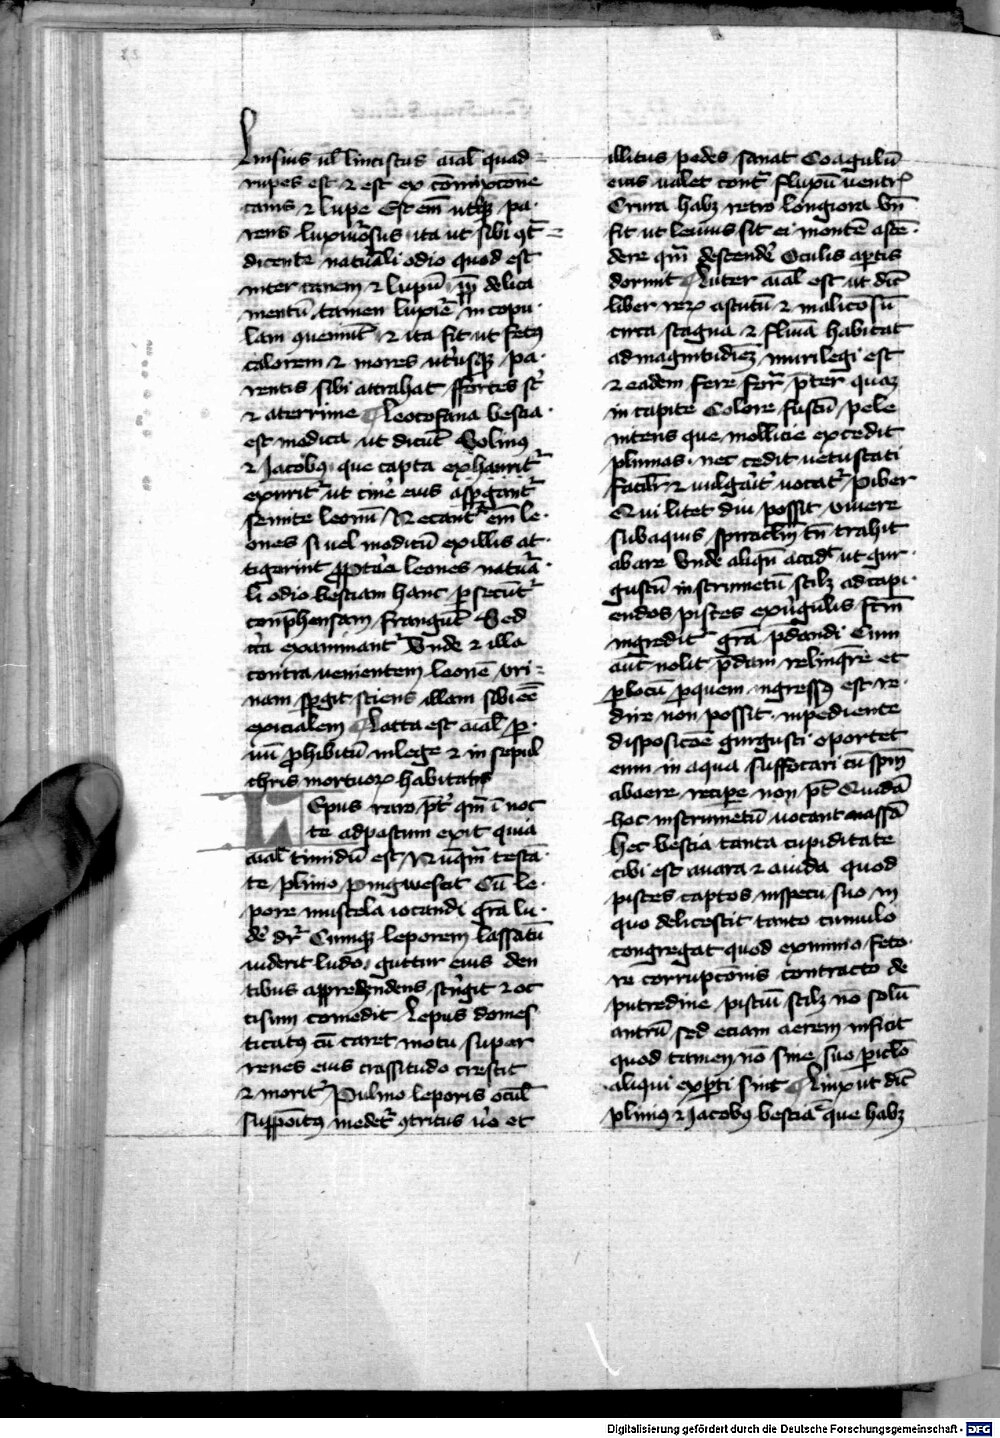 Linsius ul̄ linciscus aīal quad-
rupes est ⁊ est ex cōmixtōne
canis ⁊ lupe Est em̄ utq̨ pa-
rens luxuīosus ita ut sibi ꝯt̄-
dicente natūali odio quod est
inter canem ⁊ lupū
mentū tamen luxuīe in copu-
lam ꝯueniūt ⁊ ita fit ut fetꝰ
calorem ⁊ mores ut̄usq̨ pa-
rentis sibi attrahat ffortes st̄
⁊ aterrime Leocofana bestia
est modica ut dicūt Solinꝰ
⁊ Jacobꝰ que capta
exurit̄ ut cīne eius asp̱gant̄
semite leonū Necant̄ em̄ le-
ones si vel modicū ex illis at-
tigerint ꝓpt̄ea leones natūa-
li odio bestiam hanc ꝑsecūt̄
conp̄hensam frangūt Sed
cīa examinant̄ Unde ⁊ illa
contra venientem leonē vri-
nam sp̱git sciens illam sibi eē
exicialem Lacta est aīal ꝑ-
uū ꝓhibitū in lege ⁊ in sepul
chris mortuoꝝ habitans
LEpus raro pt̄ qm̄ ī noc
te ad pastum exit quia
aīal timidū est Nūqm̄ testā-
te plinio pingwescit Cū le-
pore mustela iocandi gr̄a lu-
de dr̄ Cumq̨ leporem lassatū
uiderit ludo guttur eius den
tibus apprehendens strīgit ⁊ oc
cisum comedit Lepus domes
ticatꝰ cū caret motu super
renes eius crassitudo crescit
⁊ morit̄ Pulmo leporis ocul̄
suppōitꝰ medet̄ ꝯtritus ūo et
illitus pedes sanat Coagulū
eius ualet cont̄ fluxū uentr̄
Crura habꝫ retro longiora Vn̄
fit ut leuius sit ei montē ascē-
dere qm̄ descende Oculis aꝑtis
dormit Luter aīal est ut dic̄
liber reꝝ astutū ⁊ maliciosū
circa stagna ⁊ fluuia habitat
ad magnitudīeꝫ murilegi est
⁊ eadem fere for̄ p̄ter quaꝫ
in capite Colore fuscū pele
nitens que mollicie excedit
plumas nec cedit uetustati
facilr̄ ⁊ uulgaīt̄ uocat̄ Piber
Qui licet diu possit vivere
sub aquis spiraclm̄ tn̄ trahit
ab are Unde aliqn̄ accid̄ ut gur-
gustū instrumētū scilꝫ ad capi-
endos pisces ex uīgulis fcm̄
ingredit̄ gr̄a p̄dandi Cum
aūt nolit p̄dam relinq̄re et
ꝑ locū ꝑ quem ingressꝰ est re-
dire non possit inpediente
disposicōe gurgusti oportet
eum in aqua suffocari cū spm̄
ab aere recipe non pt̄ Quidā
hoc instrumētū uocant nassā
hec bestia tanta cupiditate
cibi est auara ⁊ auida quod
pisces captos in specu suo in
quo delicescit tanto cumulo
congregat quod ex nimio feto-
re corrupcōnis contracto de
putredine pisciū scilꝫ nō solū
antrū sed eciam aerem inficit
quod tamen nō sine suo ꝑiclō
aliqui exꝑti sint Linx ut dic̄
plinius ⁊ Jacobꝰ bestia ē que habꝫ
Digitalisierung gefördert durch die Deutsche Forschungsgemeinschaft - DFG